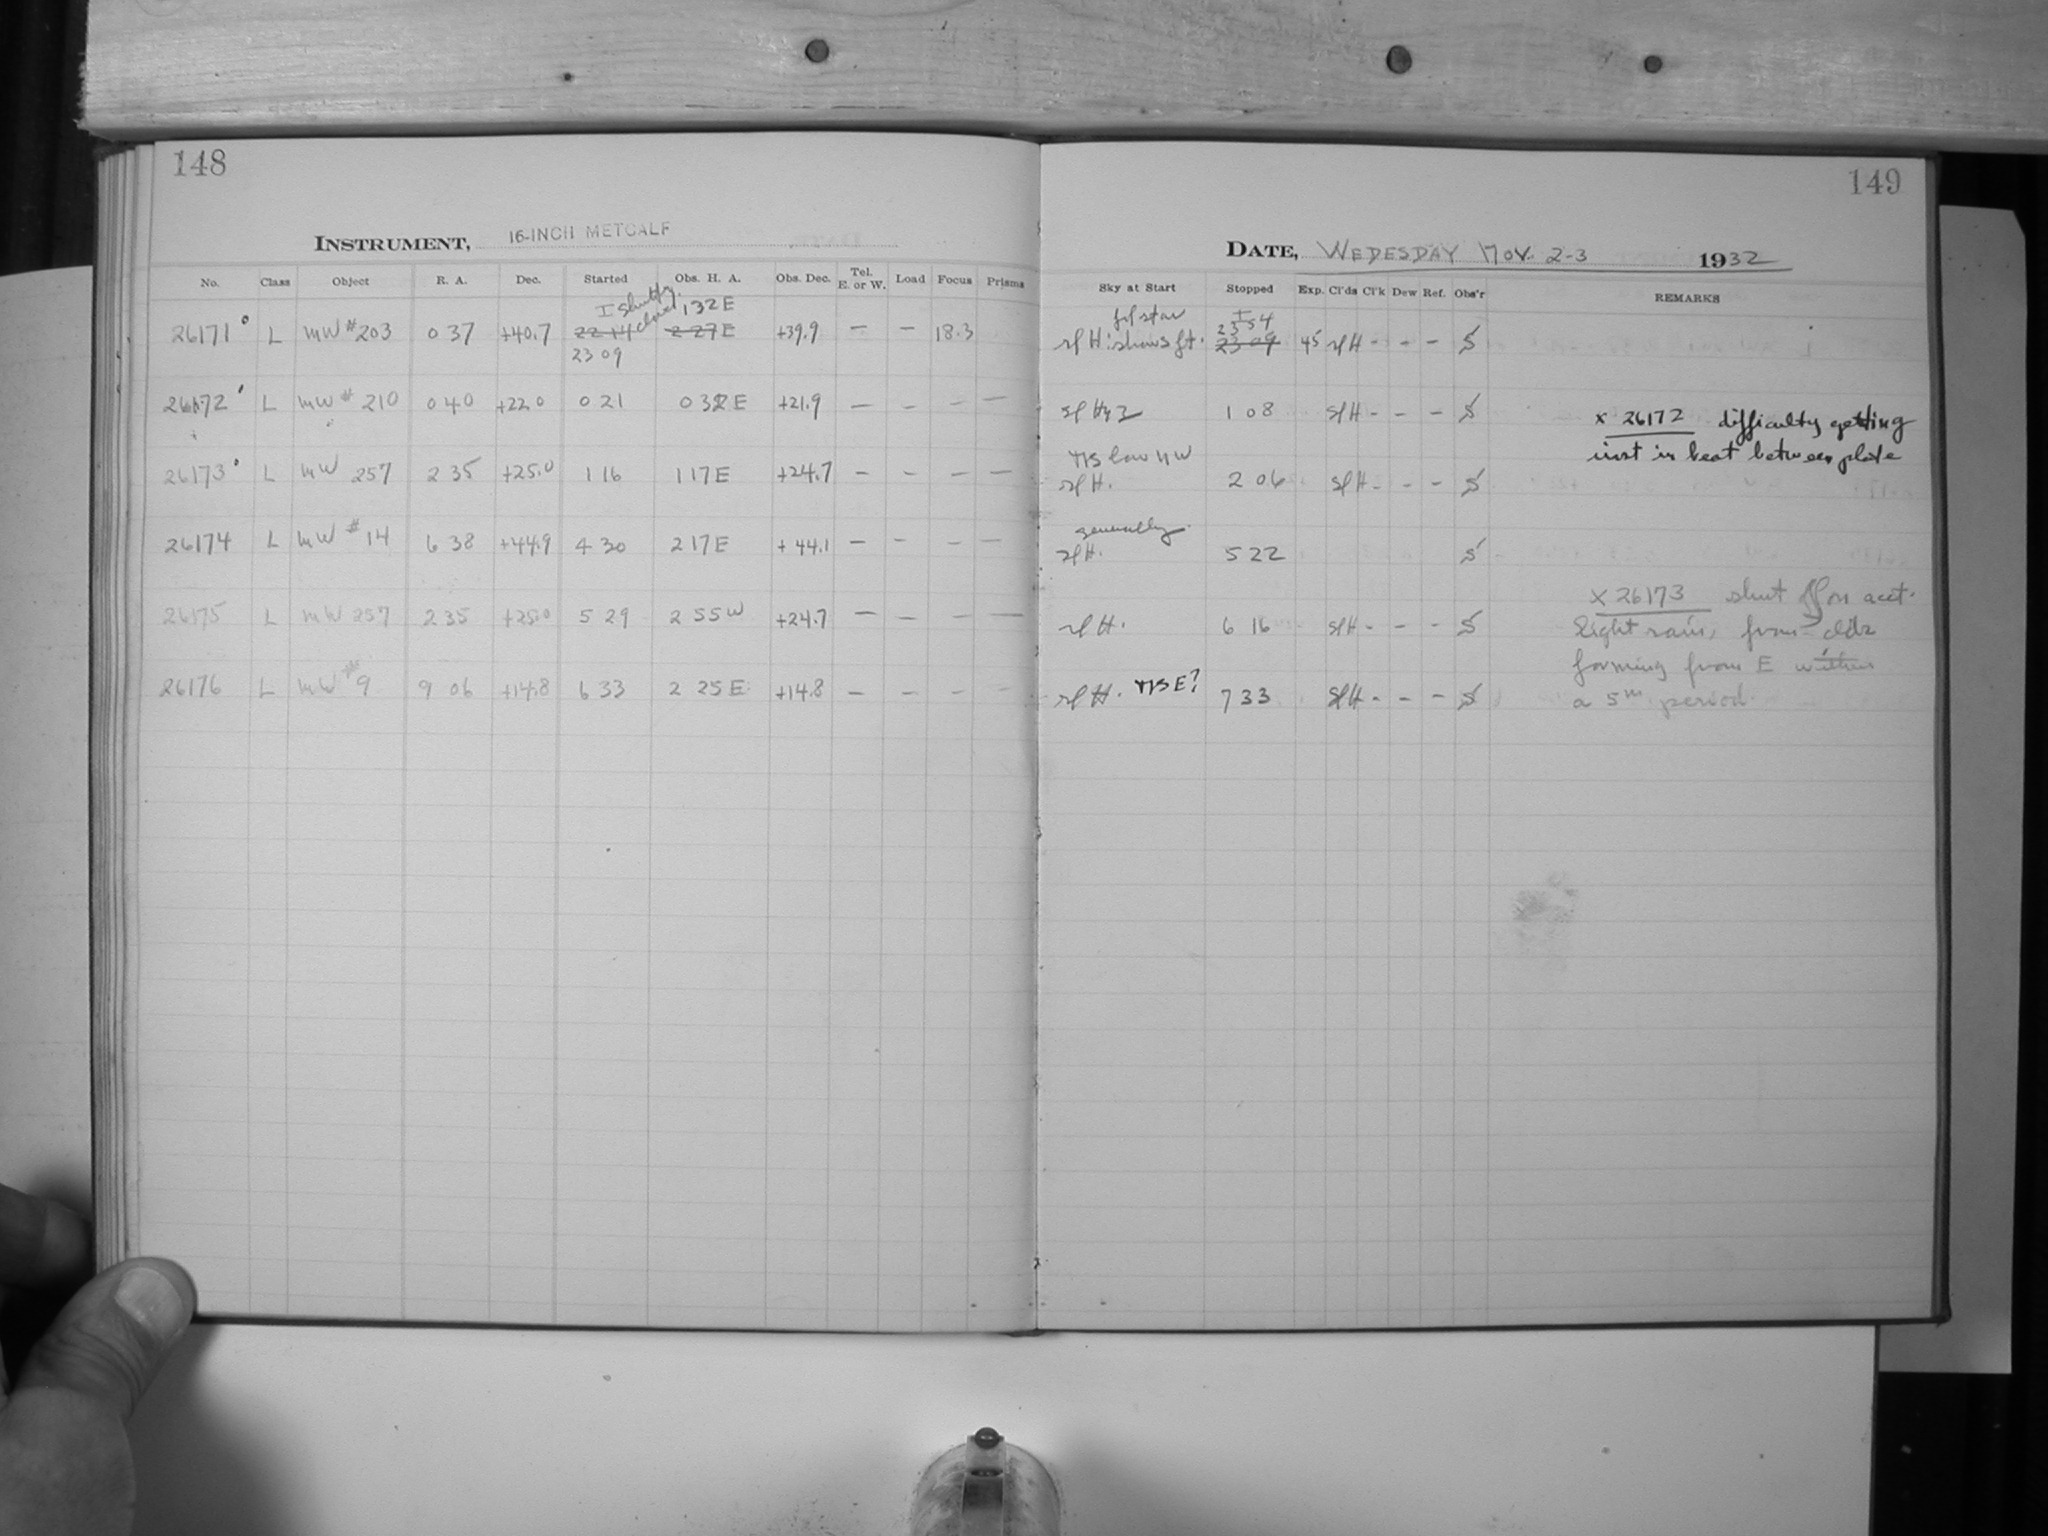 148
149
INSTRUMENT, 16-INCH METCALF
DATE, WEDESDAY NOV. 2-3 1932
No. Class Object R. A. Dec. Started Obs. H. A. Obs. Dec. Tel. E. or W. Load Focus Prisms Sky at Start Stopped Exp. Cl'ds Cl'k Dew Ref. Obs'r REMARKS
1 32 E
26171 L MW #203 0 37 +40.7 22 14 2 27 E +39.9 — — 18.3 23 09 45 - - - S
23 09 23 54
26172 L MW #210 0 40 +22.0 0 21 0 32 E +21.9 — — — — 1 08 - - - S
26173 L MW 257 2 35 +25.0 1 16 1 17 E +24.7 — — — — low NW 2 06 - - - S
26174 L MW #14 6 38 +44.9 4 30 2 17 E +44.1 — — — — generally 5 22 S
26175 L MW 257 2 35 +25.0 5 29 2 55 W +24.7 — — — — 6 16 - - - S
26176 L MW #9 9 06 +14.8 6 33 2 25 E +14.8 — — — — E? 7 33 - - - S
x 26172 difficulty getting
inst in beat between plate
x 26173 shut off on acct.
light rain, from clds
forming from E within
a 5m period.